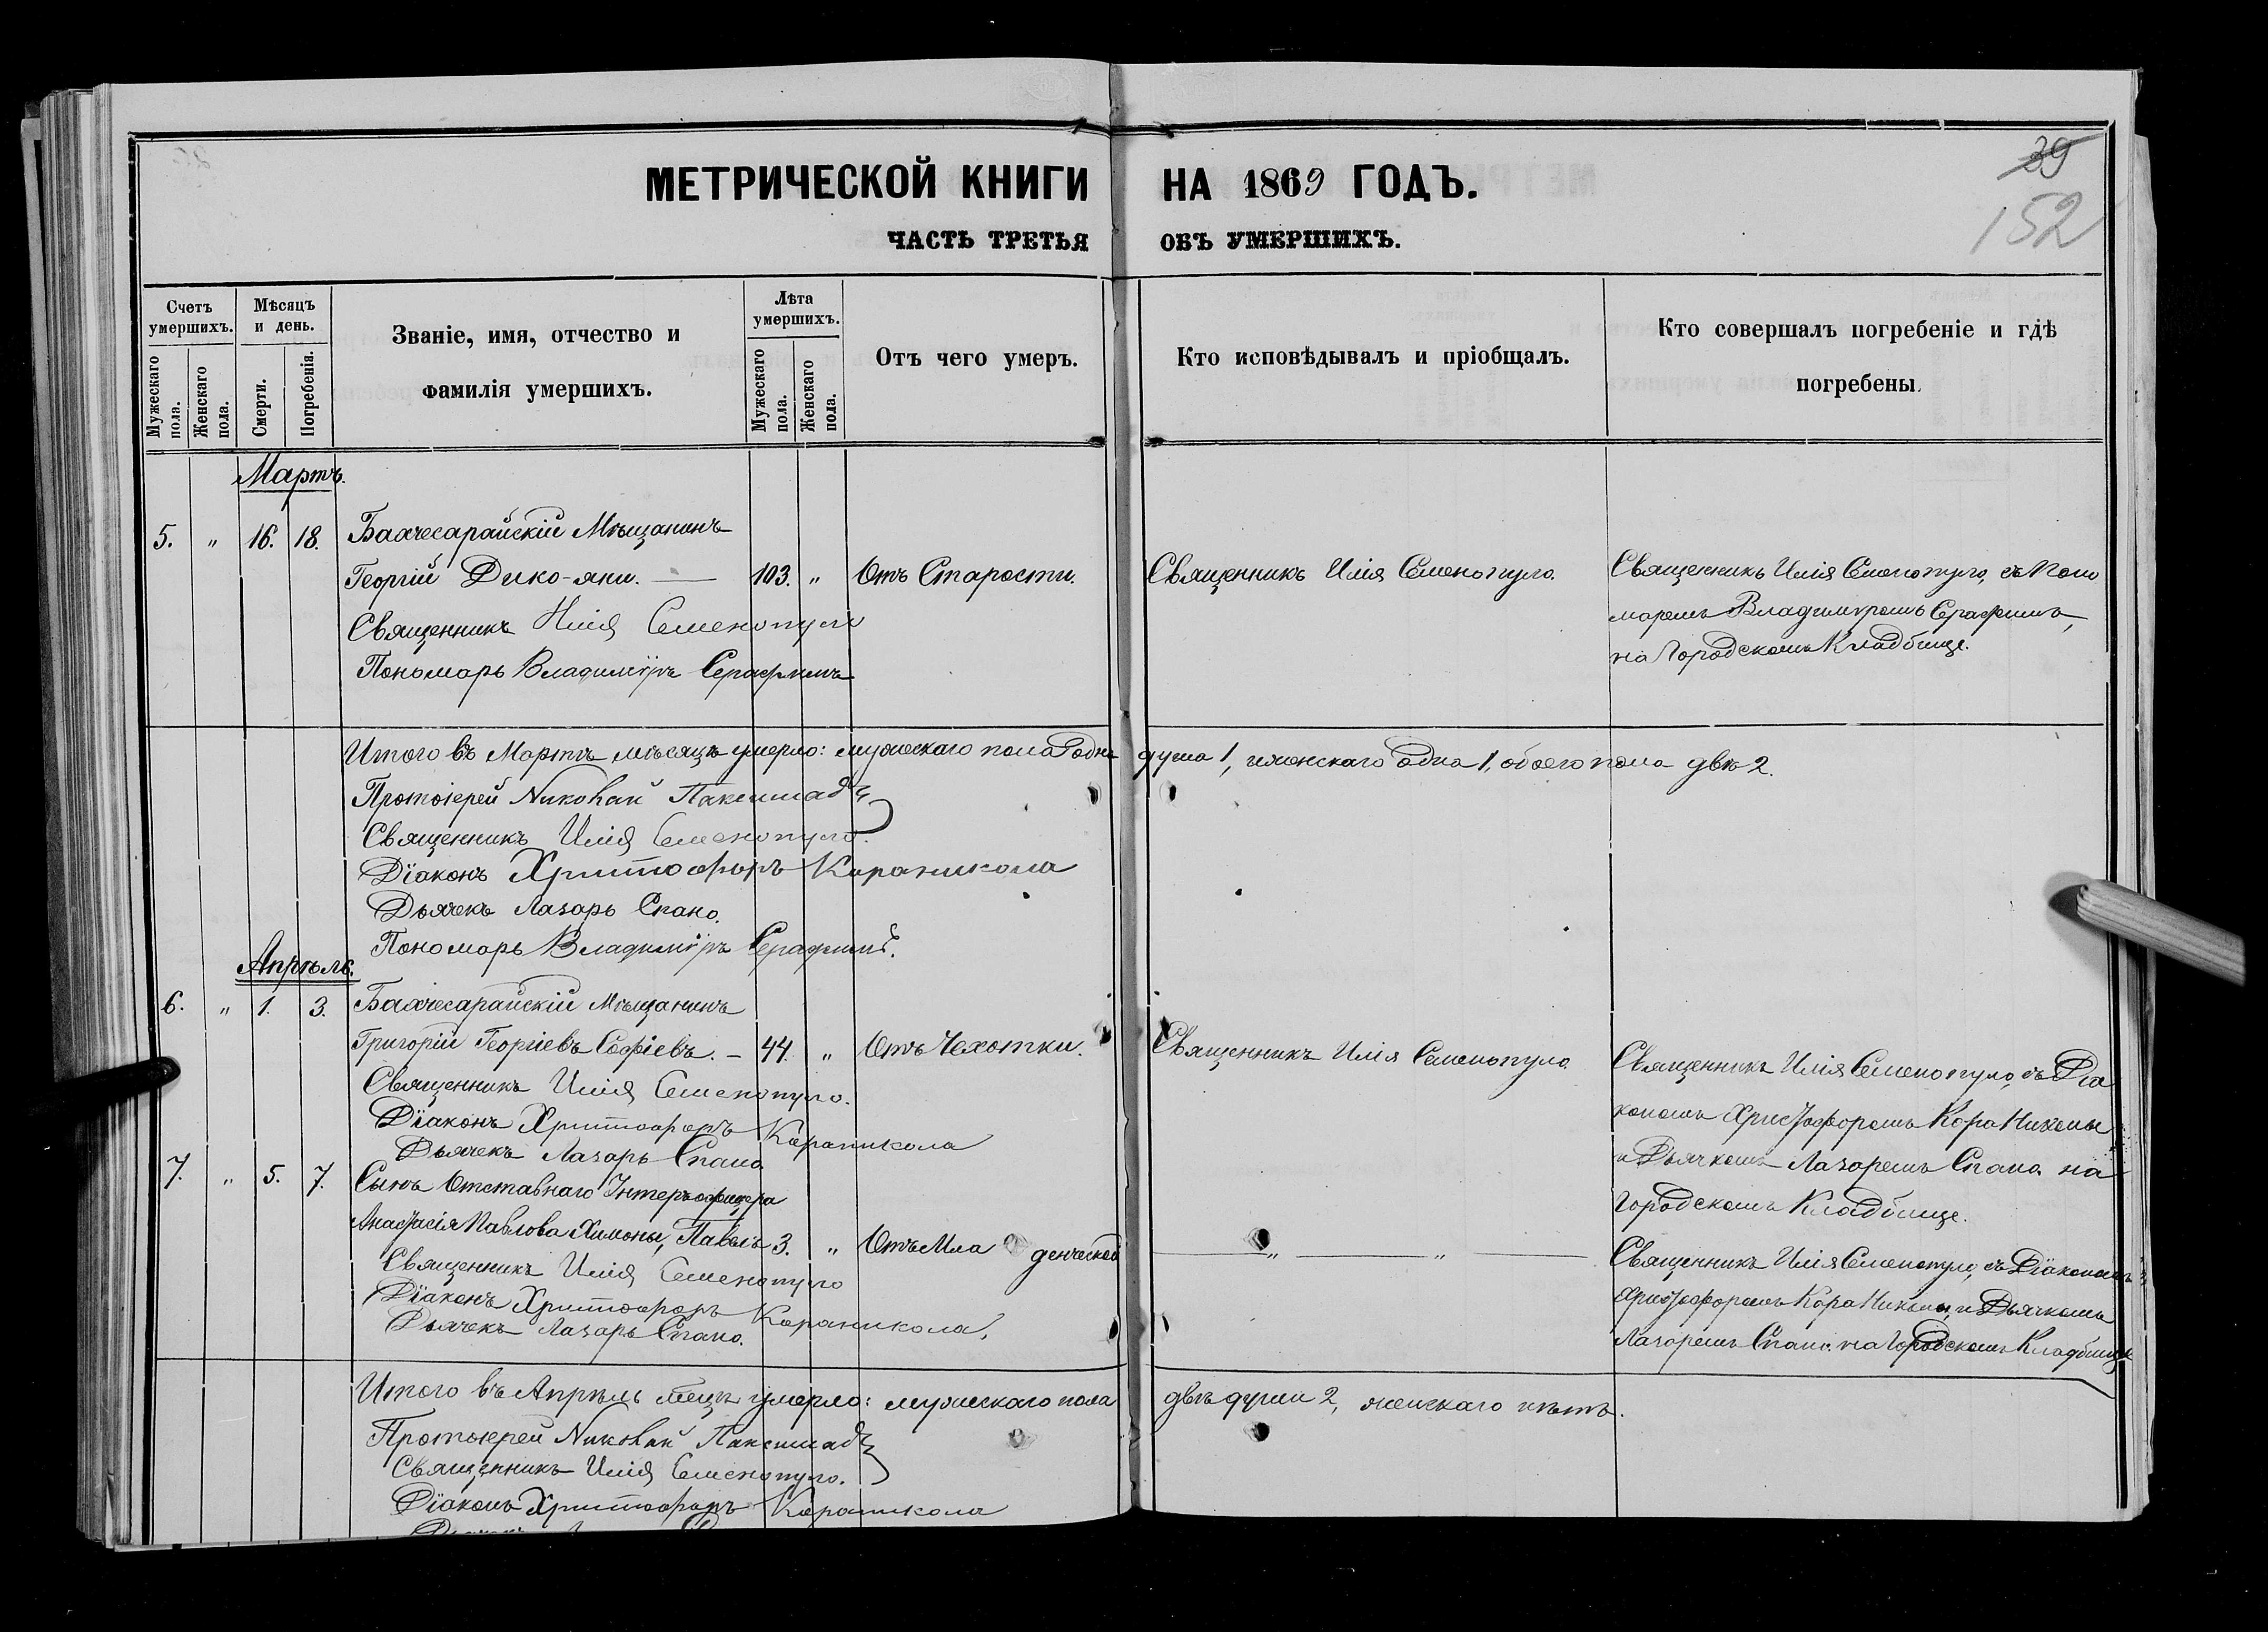 39
152
МЕТРИЧЕСКОЙ КНИГИ НА 1869 ГОДЪ.
ЧАСТЬ ТРЕТЬЯ ОБЪ УМЕРШИХЪ.
Счетъ умершихъ.
Мужескаго пола.
Женскаго пола.
Мѣсяцъ и день.
Смерти.
Погребенія.
Званіе, имя, отчество и
фамилія умершихъ.
Лѣта умершихъ.
Мужескаго пола.
Женскаго пола.
Отъ чего умеръ.
Кто исповѣдывалъ и пріобщалъ.
Кто совершалъ погребеніе и гдѣ
погребены.
Мартъ.
5. " 16. 18. Бахчесарайскій Мѣщанинъ
Георгій Дико-яни. — 103. " Отъ Старости. Священникъ Илія Семенопуло. Священникъ Илія Семенопуло, съ Поно
Священникъ Илія Семенопуло
маремъ Владимиромъ Серафимъ,
на Городскомъ Кладбище.
Пономарь Владиміръ Серафимъ
Итого въ Мартѣ мѣсяцѣ умерло: мужескаго пола Одна душа 1, женскаго одна 1, обоего пола двѣ 2.
Протоіерей Николай Паксимади
Священникъ Илія Семенопуло.
Діаконъ Христофоръ Караникола
Дьячекъ Лазарь Спано.
Пономарь Владиміръ Серафимъ.
Апрѣль.
6. " 1. 3. Бахчесарайскій Мѣщанинъ
Григорій Георгіевъ Софіевъ. – 44. " Отъ Чехотки. Священникъ Илія Семенопуло Священникъ Илія Семенопуло, съ Діа
Священникъ Илія Семенопуло.
кономъ Христофоромъ Кара Николы
Діаконъ Христофоръ Караникола
и Дьячкомъ Лазаремъ Спано на
Дьячекъ Лазарь Спано
Городскомъ Кладбище.
7. " 5. 7. Сынъ Отставнаго Унтеръ офицера
Анастасія Павлова Химоны, Павелъ 3. " Отъ Младенческой — " — " — Священникъ Илія Семенопуло, съ Діакономъ
Священникъ Илія Семенопуло
Христофоромъ Кара Николы, и Дьячкомъ
Діаконъ Христофоръ Караникола.
Лазаремъ Спано на Городскомъ Кладбище
Дьячекъ Лазарь Спано.
Итого въ Апрѣль мѣцѣ умерло: мужескаго пола двѣ души 2, женскаго нѣтъ.
Протоіерей Николай Паксимади
Священникъ Илія Семенопуло.
Діаконъ Христофоръ Караникола